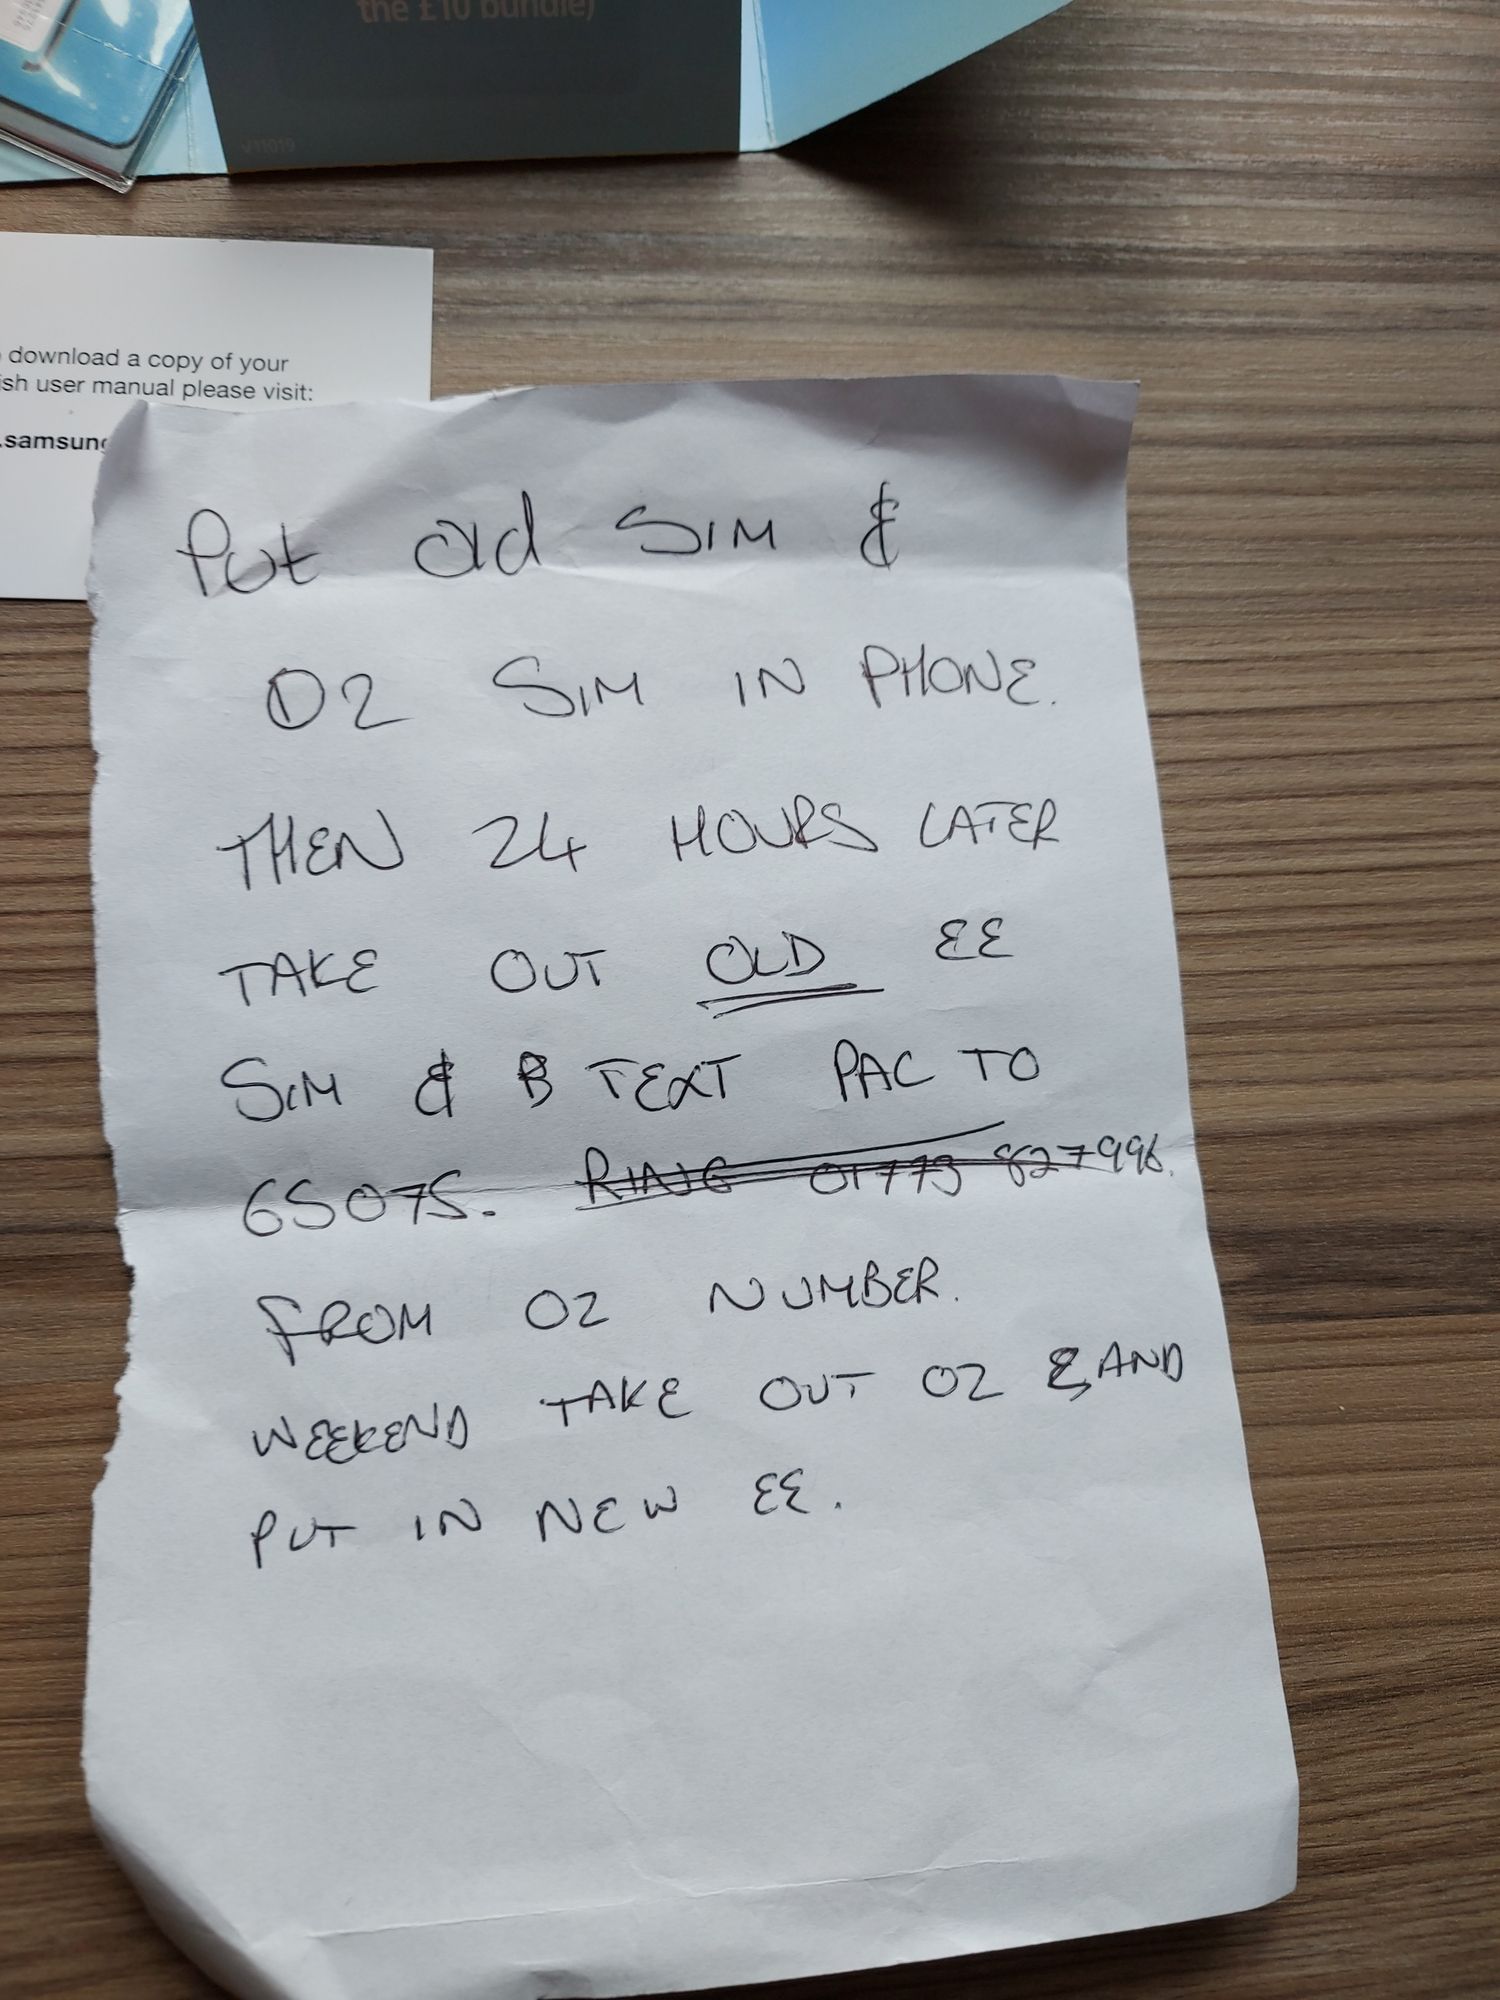 the £10 bundle)
V11019
download a copy of your
ish user manual please visit:
.samsung
Put old SIM &
O2 SIM IN PHONE.
THEN 24 HOURS LATER
TAKE OUT OLD EE
SIM & B TEXT PAC TO
65075. RING 01773 827996.
FROM O2 NUMBER.
WEEKEND TAKE OUT O2 & AND
PUT IN NEW EE.